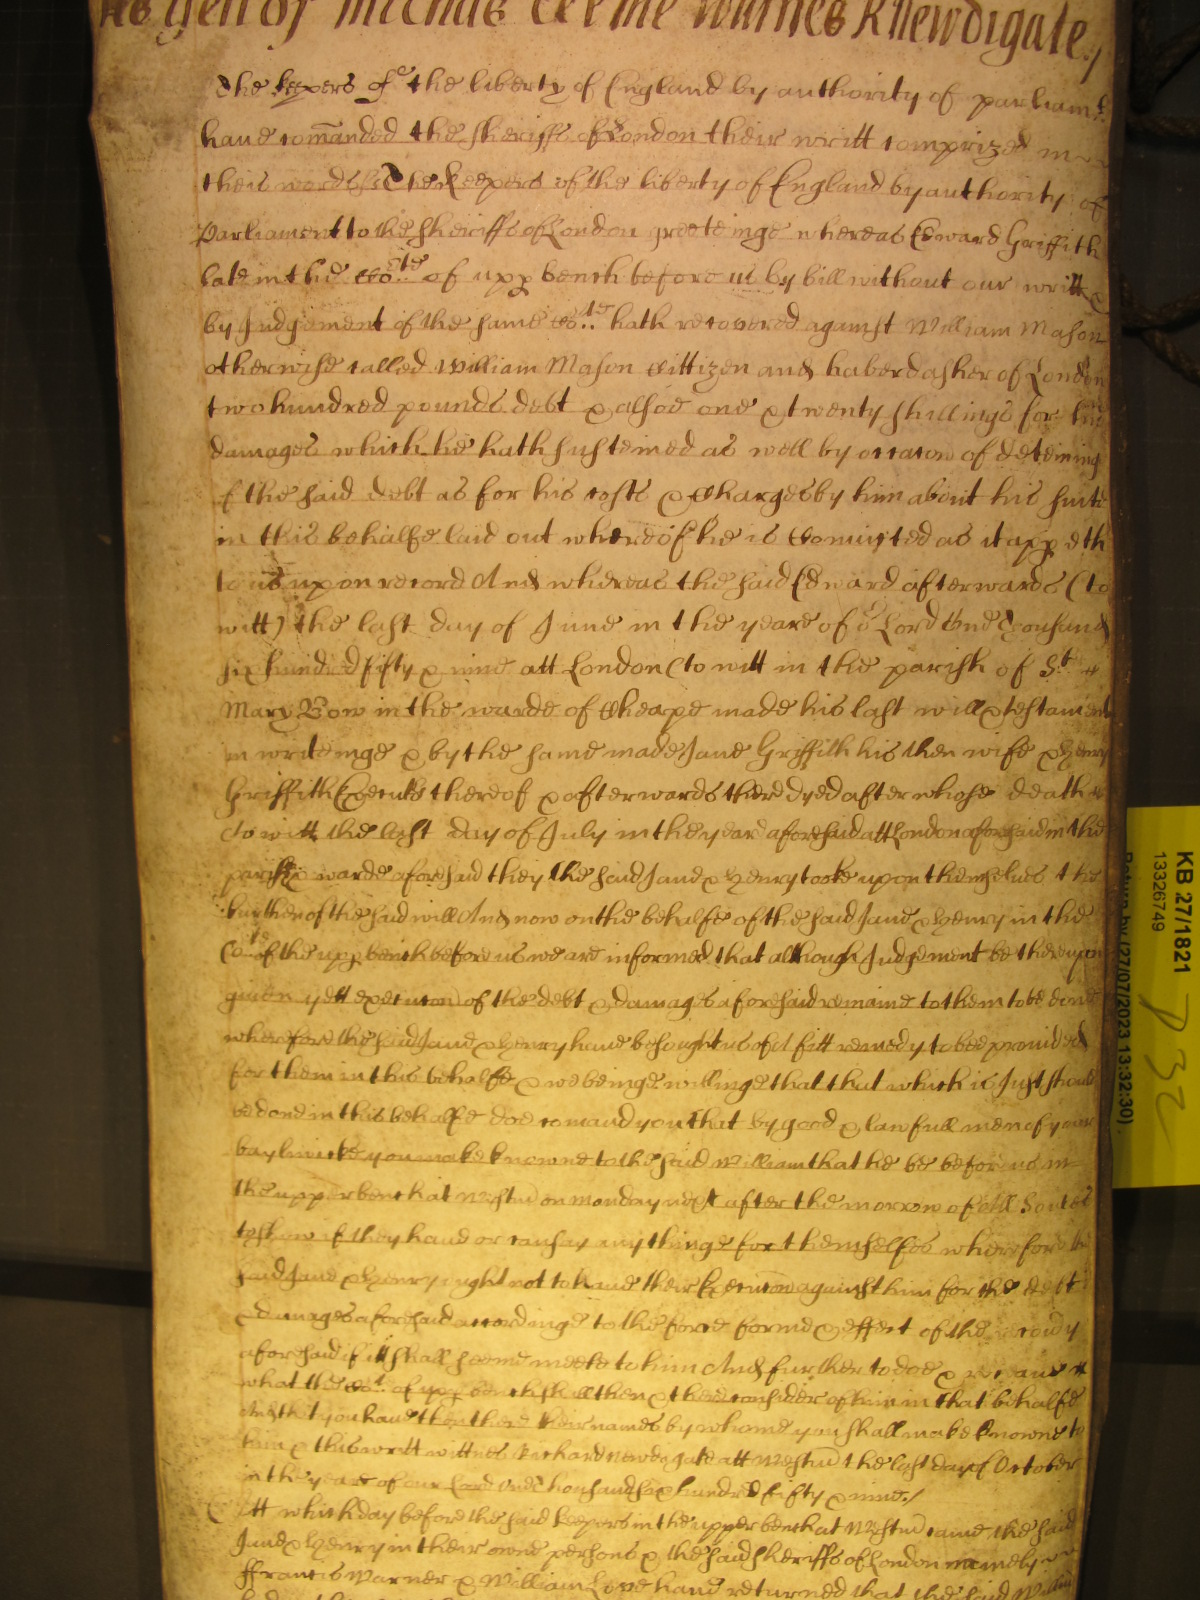 of Michās terme Wittnes R Newdigate /
The keepers of the liberty of England by authority of parliamt
haue com̄anded the Sheriffs of London their writt comprized in
theis words ss The Keepers of the liberty of England by authority of
Parliament to the Sheriffs of London greeteinge whereas Edward Griffith
late in the Cote of upp bench before us by bill without our writt &
by Judgement of the same Cote hath recovered against William Mason
otherwise called William Mason Cittizen and haberdasher of London
two hundred pounds debt & alsoe one & twenty shillings for his
damages which he hath susteined as well by occacon of deteining
of the said debt as for his costs & Charges by him about his suite
in this behalfe laid out whereof he is Convicted as it appeth
to us upon record And whereas the said Edward afterwards (to
witt) the last day of June in the yeare of or Lord One Thousand
six hundred fifty & nine att London (to witt in the parish of St
Mary Bow in the warde of Cheape made his last will & testament
in writeinge & by the same made Jane Griffith his then wife & Henry
Griffith Executrs thereof & afterwards there dyed after whose death
(to witt the last day of July in the yeare aforesaid att London aforesaid in the
parish & warde aforesaid they the said Jane & Henry tooke upon themselues the
burthen of the said will And now on the behalfe of the said Jane & Henry in the
Cote of the upp bench before us we are informed that although Judgement be thereupon
giuen yett execucon of the debt & damages aforesaid remaine to them to be done
wherefore the said Jane & Henry haue besought us of A fitt remedy to bee provided
for them in this behalfe & we beinge willinge that that which is Just should
be done in this behalfe doe comand you that by good & lawfull men of your
bayliwicke you make knowne to the said William that he be before us in
the upper bench at Westm̄ on monday next after the morrow of All Soules
to shew if they haue or can say any thinge for themselfes wherefore the
said Jane & Henry ought not to haue their Execucon against him for the debt
& damages aforesaid accordinge to the force forme & effect of the recovy
aforesaid if itt shall seeme meete to him And further to doe & receaue
what the Cot of upp bench shall then & there consider of him in that behalfe
And that you haue then there their names by whome you shall make knowne to
him & this writt wittnes Richard Newdigate att Westm̄ the last day of October
in the yeare of our Lord One thousand six hundred fifty & nine /
Att which day before the said keepers in the upper bench at Westm̄ came the said
Jane & Henry in their owne persons & the said Sheriffs of London namely
ffrancis Warner & William Love haue returned that the said William
KB 27/1821
13326749
Return by (27/07/2023 13:32:30)
P 32